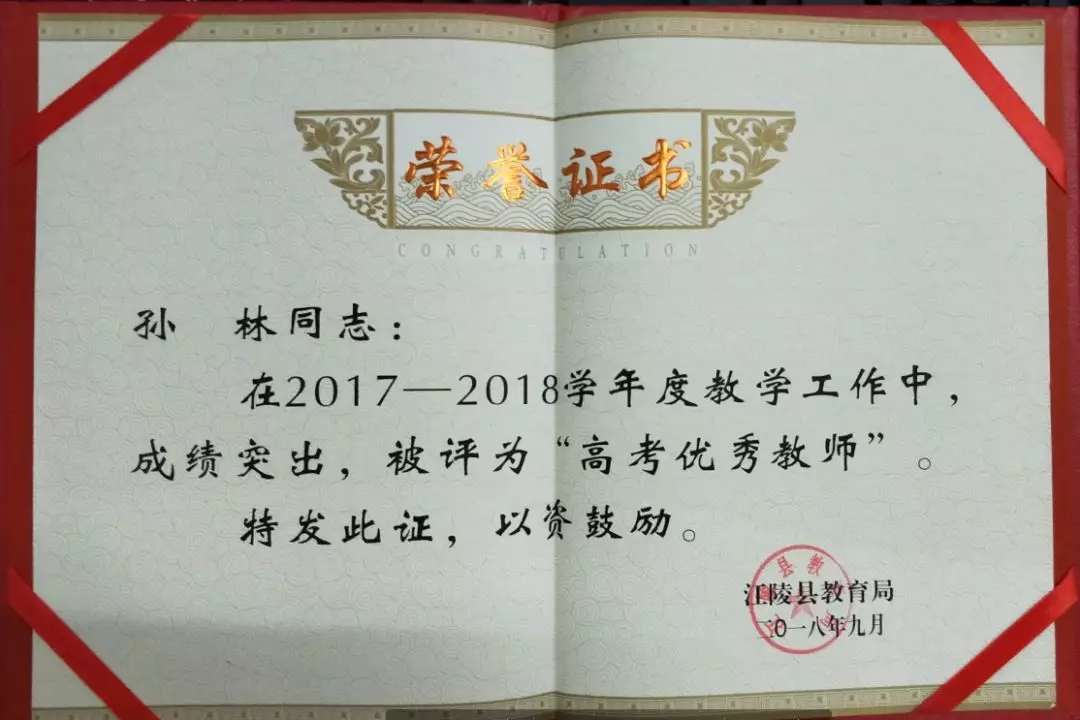 荣誉证书
CONGRATULATION
孙 林同志：
在2017—2018学年度教学工作中，
成绩突出，被评为“高考优秀教师”。
特发此证，以资鼓励。
江陵县教育局
二〇一八年九月